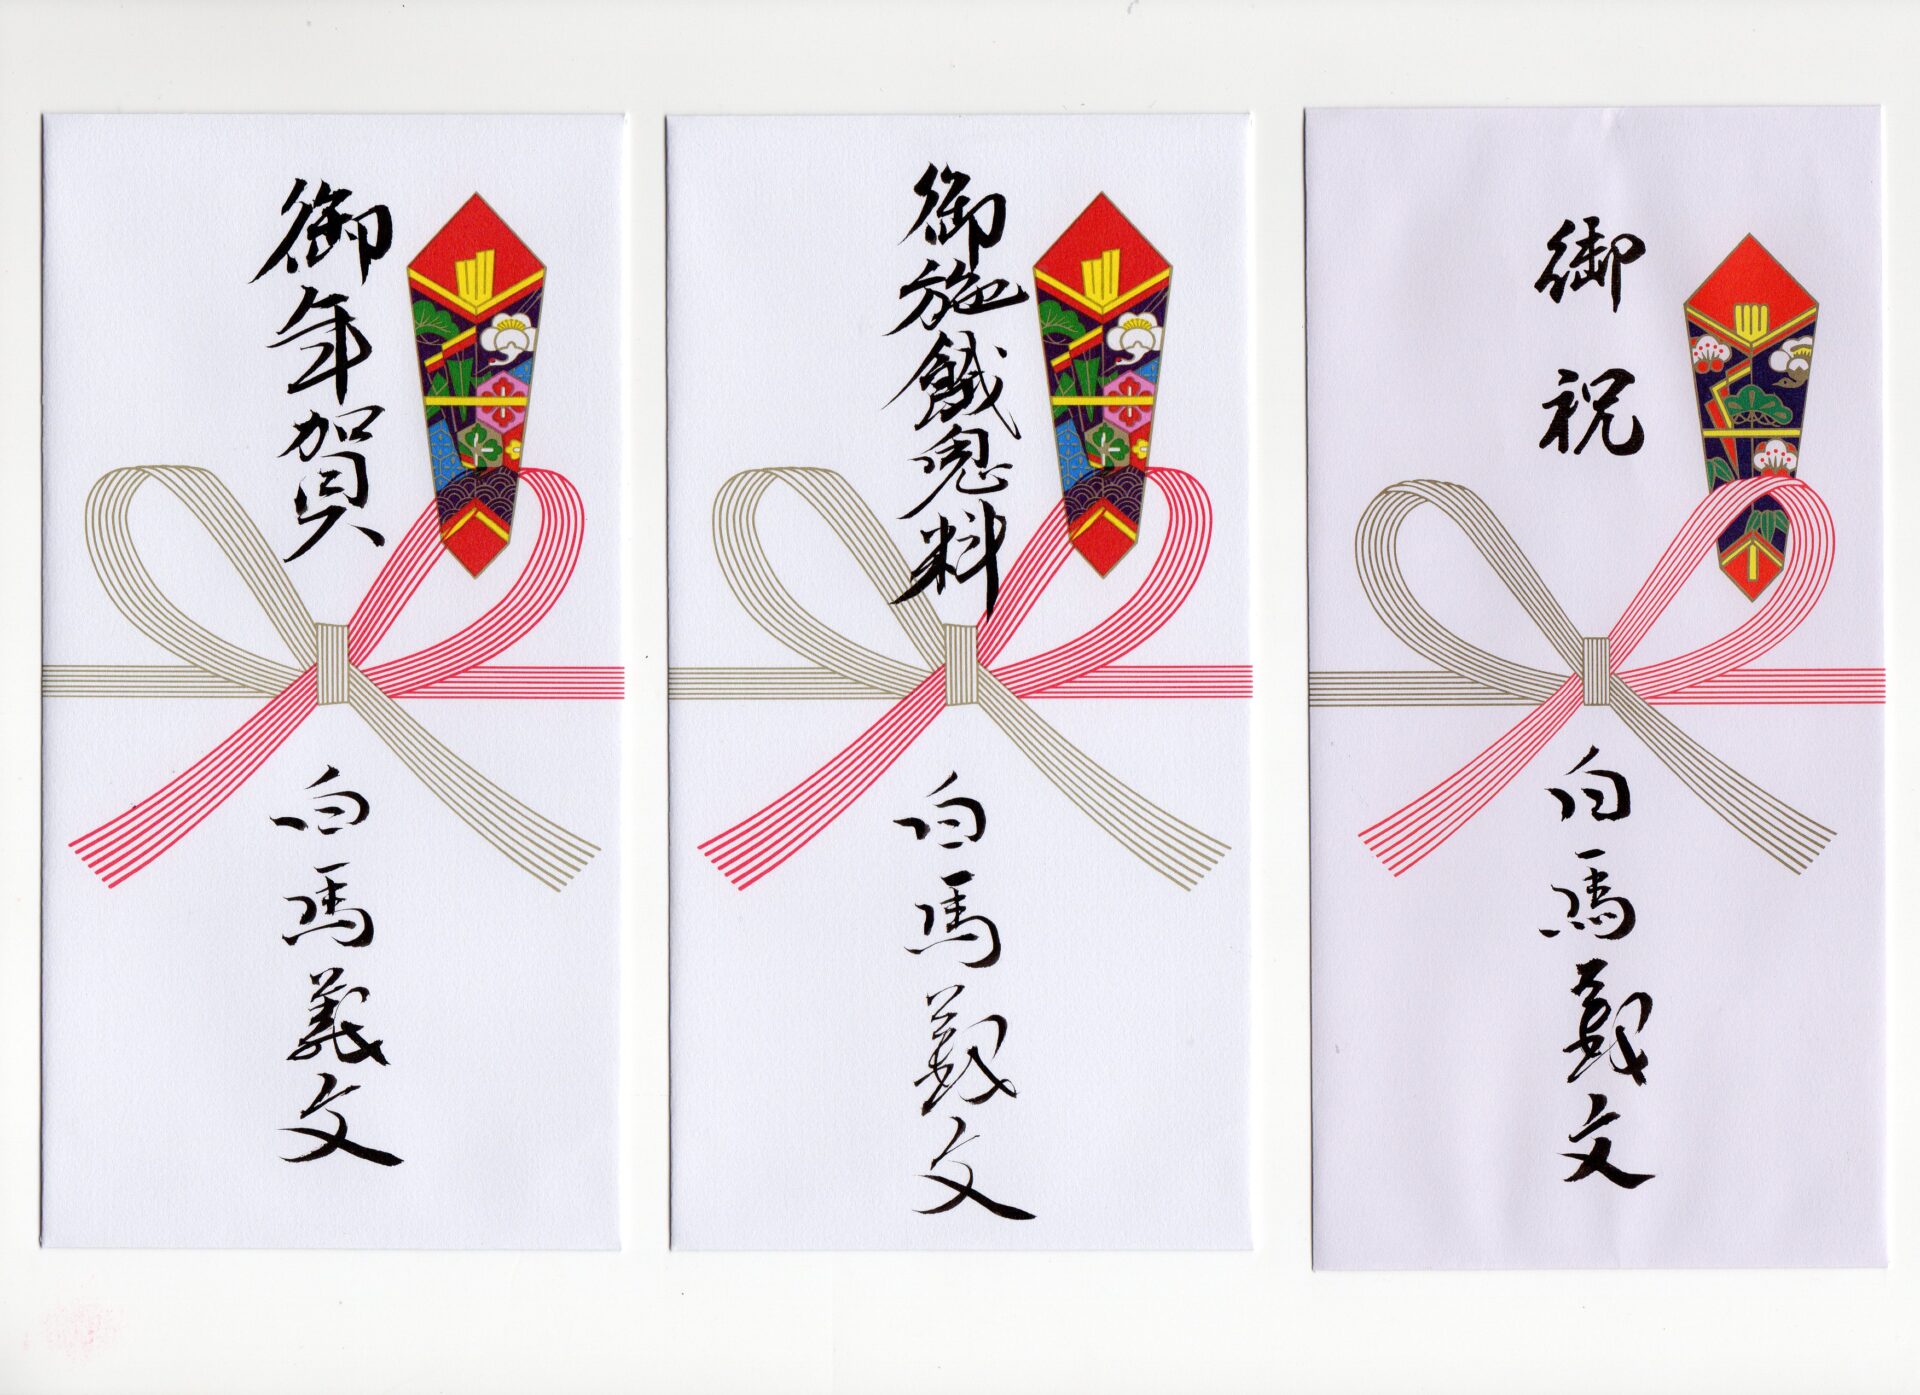 御年賀
白馬義文
御施餓鬼料
白馬義文
御祝
白馬義文